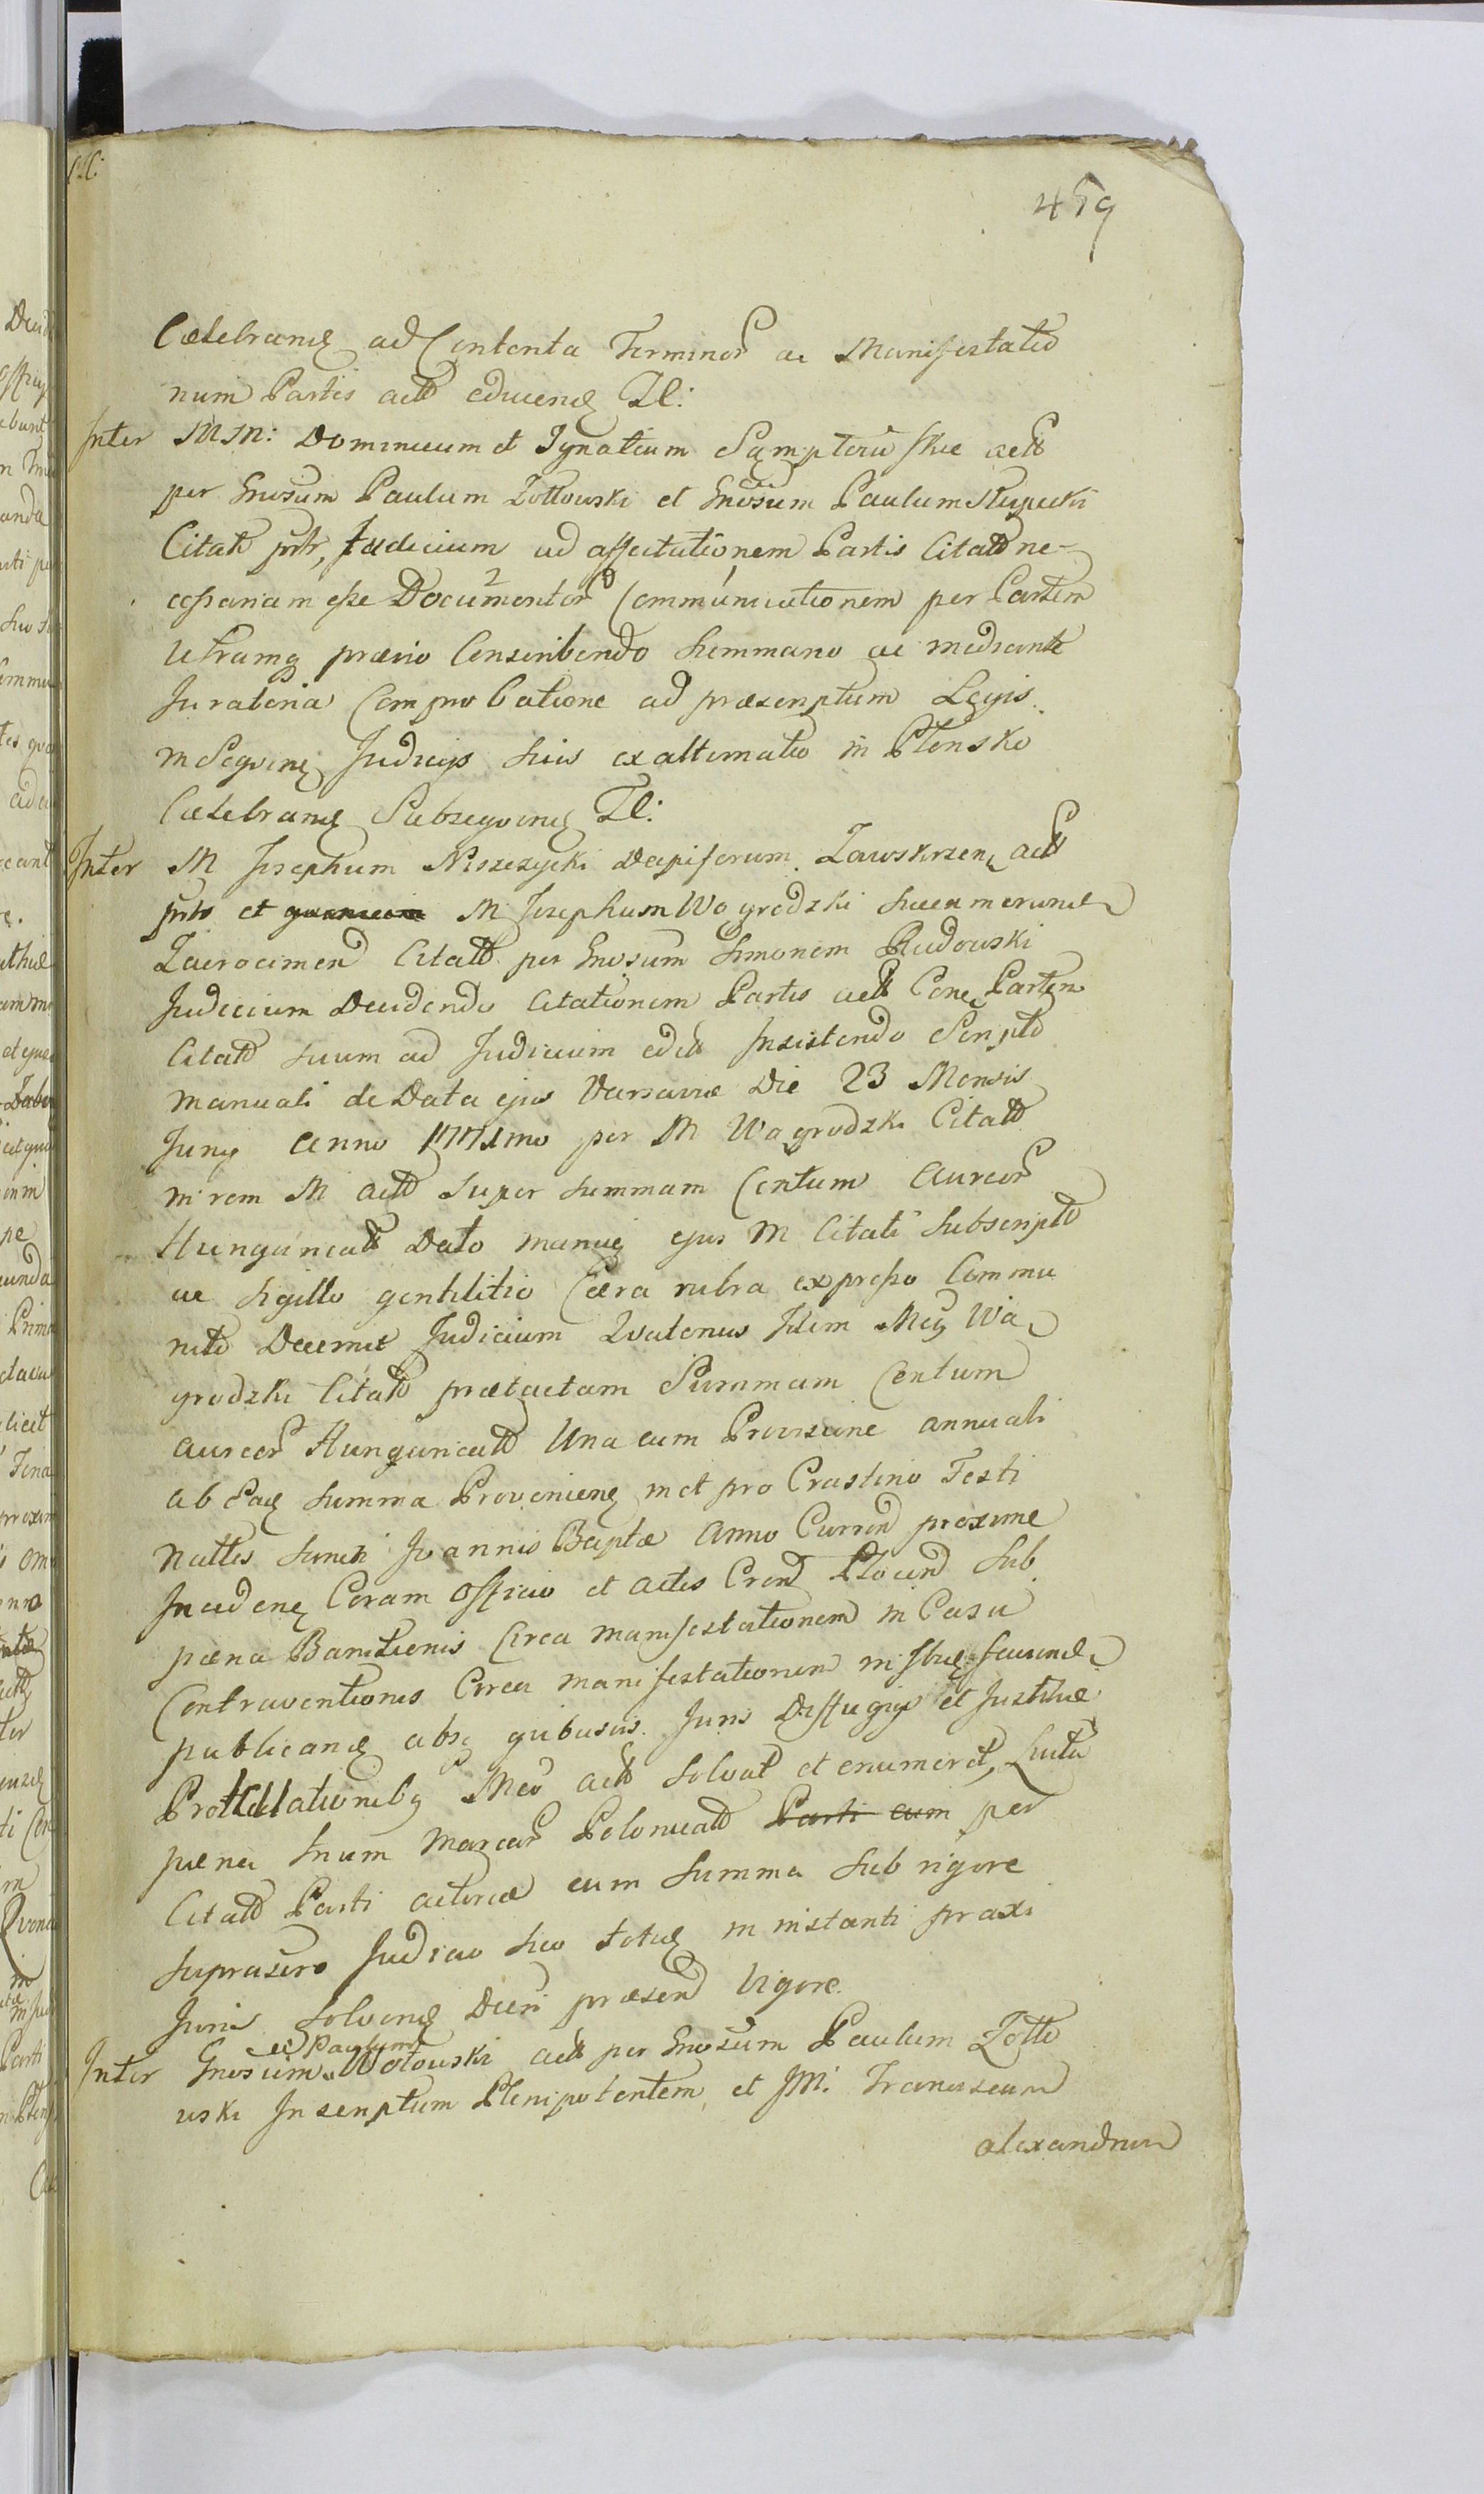 459
Celebranę ad Contenta Terminor ac Manifestatio
num Partis actt educenę Tl:
Inter MM: Dominicum et Ignatium Sąmptorii skie actt
per Gnosum Paulum Zottowski et Gnosum Paulum Stupecki
Citatt pntr, Judicium ad affectationem Partis Citatt ne-
cessariam esse Documentor Communicationem per Partem
Utramq prævio Conscribendo Summario ac mediante
Juratoria Comprobatione ad præscriptum Legis
in Seqvenę Judicijs suis ex alternatio in Plonsko
Celebranę Subseqvenę Tl:
Inter M Josephum Niszczycki Dapiferum Zawskrzenę actt
pnts et M Josephum Wagrodzki Succamerarid
Zacrocimen Citatt per Gnosum Simonem Rudowski
Judicium Decidendo Citationem Partis actt Cone Partem
Citatt suum ad Judicium edit Insistendo Scripto
manuali de Data ejus Varsaviæ Die 23 Mensis
Junij Anno 1771mo per M Wagrodzki Citatt
in rem M actt super summam Centum Aureor
Hungaricatt Dato manuq ejus M Citati Subscripto
ac Sigillo gentilitio Cæra rubra expresso Commu
nito Decernit Judicium Qvatenus Idem Mcus Wa
grodzki Citatt prætactam Summam Centum
aureor Hungaricatt Una cum Provisione annuali
ab Eadę Summa Provenienę in et pro Crastino Festi
Nattis Sancti Joannis Baptæ Anno Curren proxime
Incidenę Coram Officio et Actis Cren Plocen sub
pæna Banitionis Circa manifestationem in Casu
Contraventionis Circa manifestationem in
publicanę absq quibusvis Juris Diffugijs et Justitiæ
Prottellationibq Mco actt solvat et enumeret, Lucta
pæna trium Marcar Polonicatt Parti cum per
Citatt Parti actoreæ cum Summa sub rigore
suprascro Judicio suo totidę in instanti praxi
Juris solvenę Decri præsen Vigore.
et Paulum
Inter Gnosum Wotowski actt per Gnosum Paulum Zotto
wski Inscriptum Plenipotentem et JM: Franciscum
alexandrum